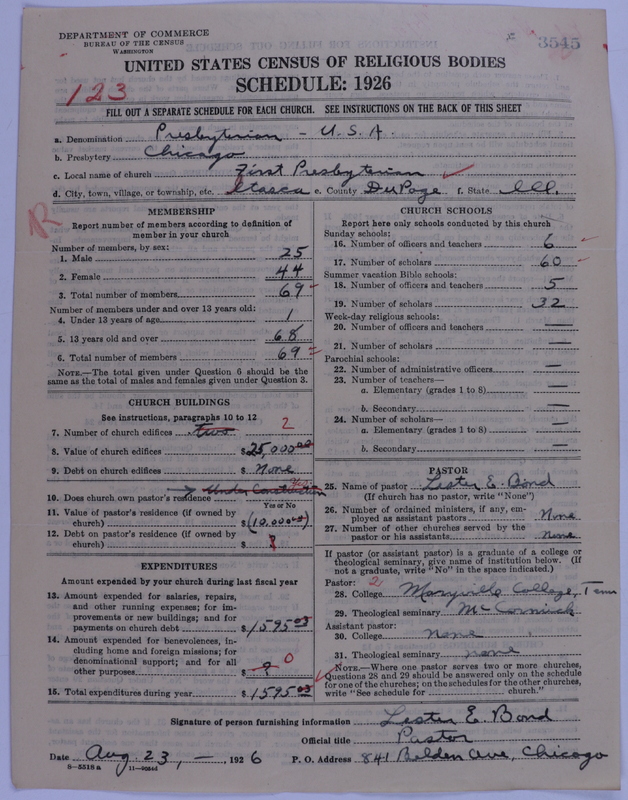 DEPARTMENT OF COMMERCE
BUREAU OF THE CENSUS
WASHINGTON
3545
UNITED STATES CENSUS OF RELIGIOUS BODIES
SCHEDULE: 1926
123
FILL OUT A SEPARATE SCHEDULE FOR EACH CHURCH. SEE INSTRUCTIONS ON THE BACK OF THIS SHEET
a. Denomination Presbyterian - U.S.A.
b. Presbytery Chicago
c. Local name of church First Presbyterian
d. City, town, village, or township, etc. Itasca e. County DuPage f. State Ill.
R
MEMBERSHIP
Report number of members according to definition of
member in your church
Number of members, by sex:
1. Male 25
2. Female 44
3. Total number of members 69
Number of members under and over 13 years old:
4. Under 13 years of age 1
5. 13 years old and over 68
6. Total number of members 69
NOTE.—The total given under Question 6 should be
the same as the total of males and females given under Question 3.
CHURCH BUILDINGS
See instructions, paragraphs 10 to 12
7. Number of church edifices two 2
8. Value of church edifices $25,000.00
9. Debt on church edifices $ None
Under Construction
10. Does church own pastor's residence
Yes or No
11. Value of pastor's residence (if owned by
church) $(10,000.00)
12. Debt on pastor's residence (if owned by
church) $ ?
EXPENDITURES
Amount expended by your church during last fiscal year
13. Amount expended for salaries, repairs,
and other running expenses; for im-
provements or new buildings; and for
payments on church debt $1595.03
14. Amount expended for benevolences, in-
cluding home and foreign missions; for
denominational support; and for all
other purposes $ ? 0
15. Total expenditures during year $1595.03
CHURCH SCHOOLS
Report here only schools conducted by this church
Sunday schools:
16. Number of officers and teachers 6
17. Number of scholars 60
Summer vacation Bible schools:
18. Number of officers and teachers 5
19. Number of scholars 32
Week-day religious schools:
20. Number of officers and teachers —
21. Number of scholars —
Parochial schools:
22. Number of administrative officers —
23. Number of teachers—
a. Elementary (grades 1 to 8) —
b. Secondary —
24. Number of scholars—
a. Elementary (grades 1 to 8) —
b. Secondary —
PASTOR
25. Name of pastor Lester E. Bond
(If church has no pastor, write "None")
26. Number of ordained ministers, if any, em-
ployed as assistant pastors None
27. Number of other churches served by the
pastor or his assistants None
If pastor (or assistant pastor) is a graduate of a college or
theological seminary, give name of institution below. (If
not a graduate, write "No" in the space indicated.)
Pastor: 2
28. College Maryville College, Tenn
29. Theological seminary McCormick
Assistant pastor:
30. College none
31. Theological seminary none
NOTE.—Where one pastor serves two or more churches,
Questions 28 and 29 should be answered only on the schedule
for one of the churches; on the schedules for the other churches,
write "See schedule for church."
Signature of person furnishing information Lester E. Bond
Official title Pastor
Date Aug. 23, —, 1926 P. O. Address 841 Belden Ave, Chicago
8—5518 a